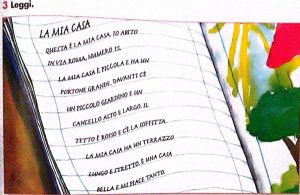 3 Leggi.
LA MIA CASA
QUESTA È LA MIA CASA. IO ABITO
IN VIA ROMA, NUMERO 15.
LA MIA CASA È PICCOLA E HA UN
PORTONE GRANDE. DAVANTI C'È
UN PICCOLO GIARDINO E UN
CANCELLO ALTO E LARGO. IL
TETTO È ROSSO E C'È LA SOFFITTA.
LA MIA CASA HA UN TERRAZZO
LUNGO E STRETTO. È UNA CASA
BELLA E MI PIACE TANTO.